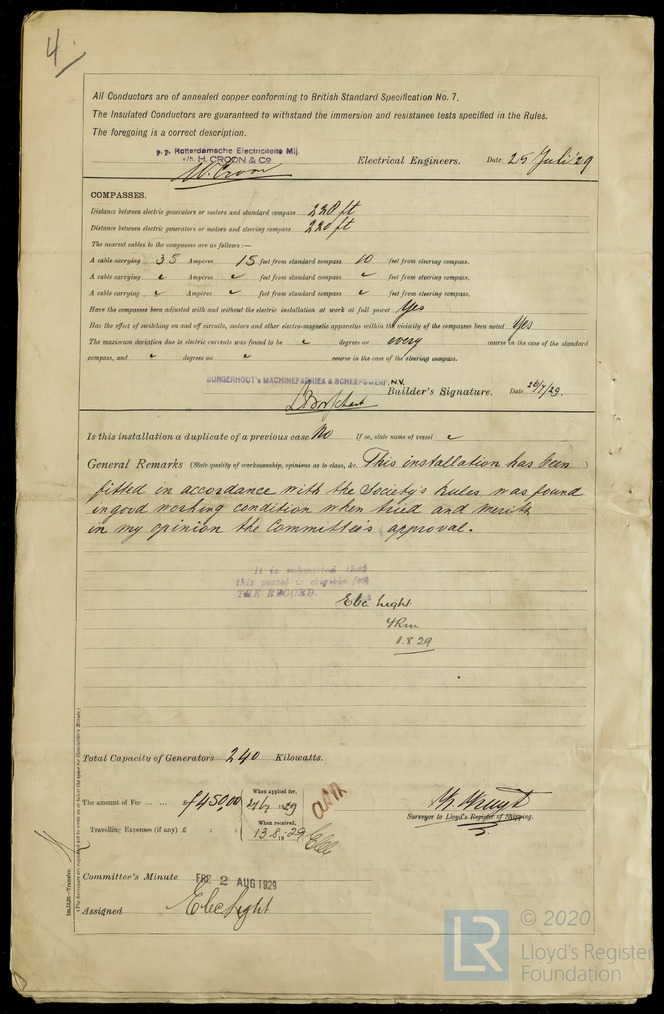 4.
All Conductors are of annealed copper conforming to British Standard Specification No. 7.
The Insulated Conductors are guaranteed to withstand the immersion and resistance tests specified in the Rules.
The foregoing is a correct description.
p.p. Rotterdamsche Electriciteits Mij.
v/h. H. CROON & Co
W. Croon Electrical Engineers. Date 25 Juli '29
COMPASSES.
Distance between electric generators or motors and standard compass 220 ft
Distance between electric generators or motors and steering compass 220 ft
The nearest cables to the compasses are as follows:—
A cable carrying 35 Ampères 15 feet from standard compass 10 feet from steering compass.
A cable carrying Ampères feet from standard compass feet from steering compass.
A cable carrying Ampères feet from standard compass feet from steering compass.
Have the compasses been adjusted with and without the electric installation at work at full power Yes
Has the effect of switching on and off circuits, motors and other electro-magnetic apparatus within the vicinity of the compasses been noted Yes
The maximum deviation due to electric currents was found to be degrees on every course in the case of the standard
compass, and degrees on course in the case of the steering compass.
BURGERHOUT's MACHINEFABRIEK & SCHEEPSWERF. N.V.
Builder's Signature. Date 26/7/29.
Is this installation a duplicate of a previous case No If so, state name of vessel
General Remarks (State quality of workmanship, opinions as to class, &c. This installation has been )
fitted in accordance with the Society's Rules was found
in good working condition when tried and merits
in my opinion the Committee's approval.
It is submitted that
this vessel is eligible for
THE RECORD. Elec. Light
1.8.29
Total Capacity of Generators 240 Kilowatts.
The amount of Fee ... ... £ f450,00 When applied for, 1929
When received,
Travelling Expenses (if any) £ : : 13.8.1929
Surveyor to Lloyd's Register of Shipping.
Committee's Minute FRI. 2 AUG 1929
Assigned Elec Light
1m,12,28.—Transfer.
(The Surveyors are requested not to write on or below the space for Committee's Minute.)
LR © 2020
Lloyd's Register
Foundation